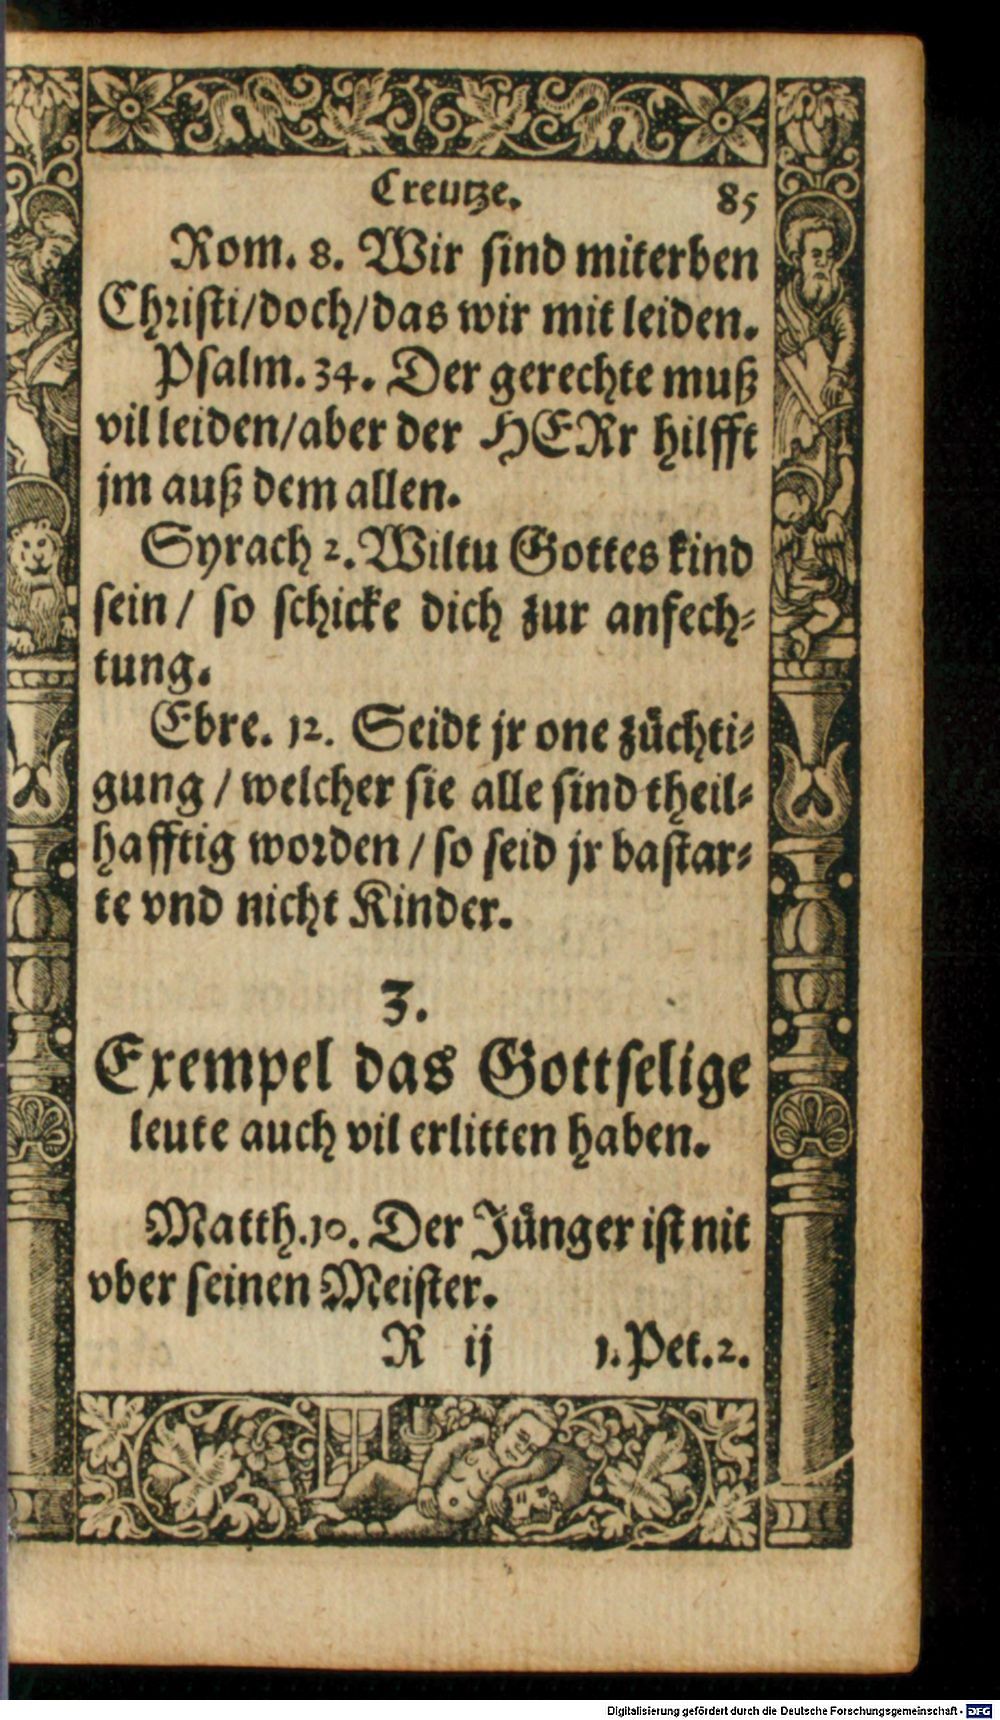 Creutze. 85
Rom. 8. Wir sind miterben
Christi/doch/das wir mit leiden.
Psalm. 34. Der gerechte muß
vil leiden/aber der HERr hilfft
jm auß dem allen.
Syrach 2. Wiltu Gottes kind
sein/ so schicke dich zur anfech-
tung.
Ebre. 12. Seidt jr one züchti-
gung / welcher sie alle sind theil-
hafftig worden / so seid jr bastar-
te vnd nicht Kinder.
3.
Exempel das Gottselige
leute auch vil erlitten haben.
Matth. 10. Der Jünger ist nit
vber seinen Meister.
R ij 1. Pet. 2.
Digitalisierung gefördert durch die Deutsche Forschungsgemeinschaft - DFG